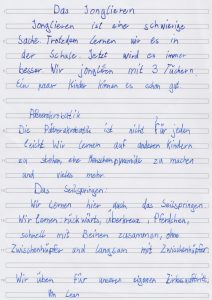 Das Jonglieren
Jonglieren ist eine schwierige
Sache. Trotzdem lernen wir es in
der Schule. Jetzt wird es immer
besser. Wir jonglieren mit 3 Tüchern.
Ein paar Kinder können es schon gut.
Die ist nicht für jeden
leicht. Wir lernen auf anderen Kindern
zu stehen, eine Menschenpyramide zu machen
und vieles mehr.
Das Seilspringen:
Wir lernen hier auch das Seilspringen.
Wir lernen rückwärts, überkreuz, Pferdchen,
schnell mit Beinen zusammen, ohne
Zwischenhüpfer und langsam mit Zwischenhüpfer.
Wir üben für unseren eigenen Zirkusauftritt.
Von Lean